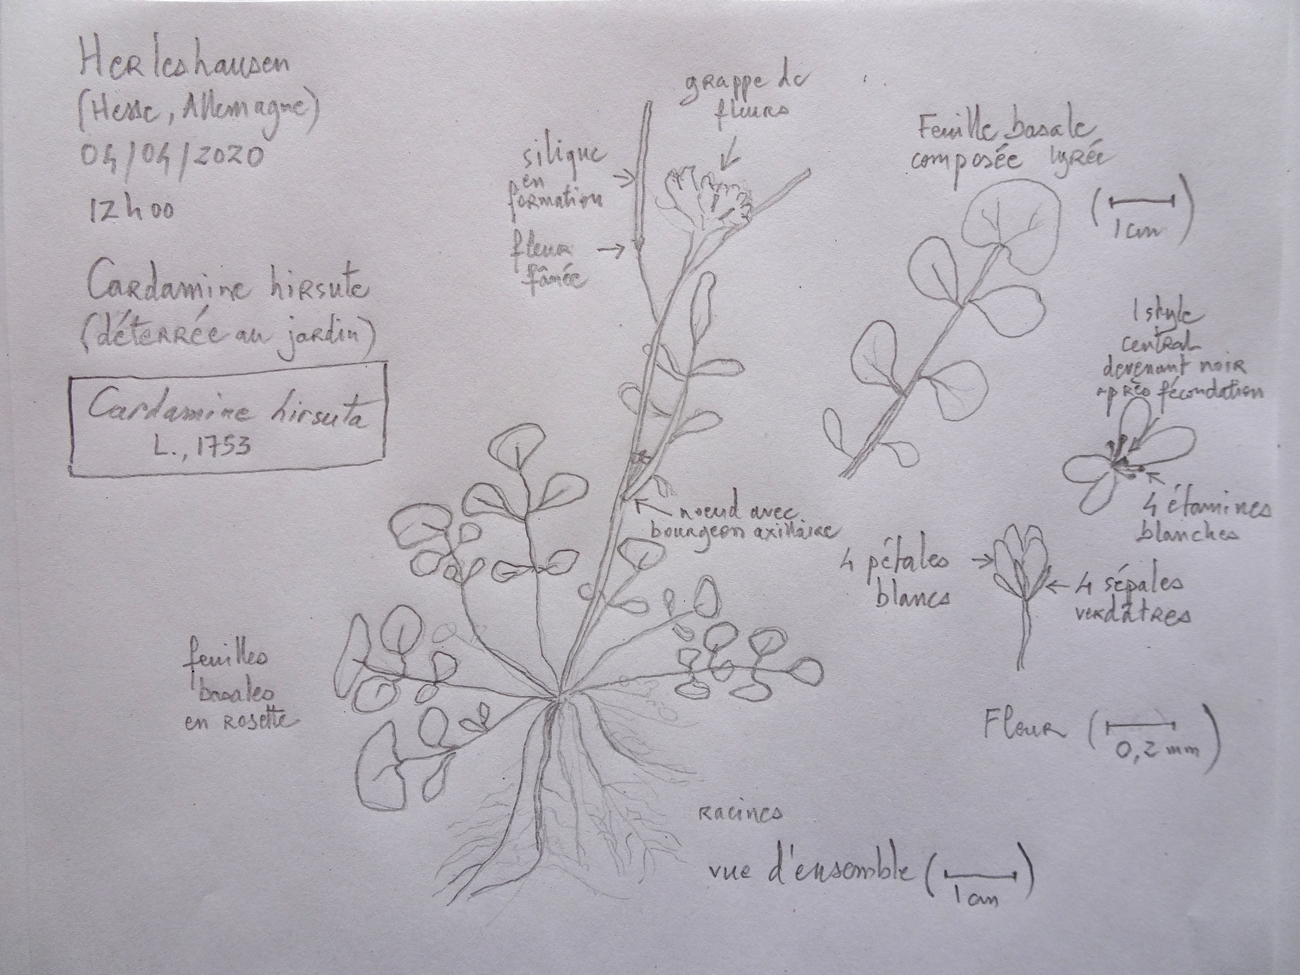 Herleshausen
(Hesse, Allemagne)
04/04/2020
12h00
Cardamine hirsute
(déterrée au jardin)
Cardamine hirsuta
L., 1753
grappe de
fleurs
silique
en
formation
fleur
fânée
Feuille basale
composée lyrée
(1cm)
1 style
central
devenant noir
après fécondation
4 étamines
blanches
noeud avec
bourgeon axillaire
4 pétales
blancs
4 sépales
verdâtres
feuilles
basales
en rosette
Fleur (0,2 mm)
racines
vue d'ensemble (1cm)